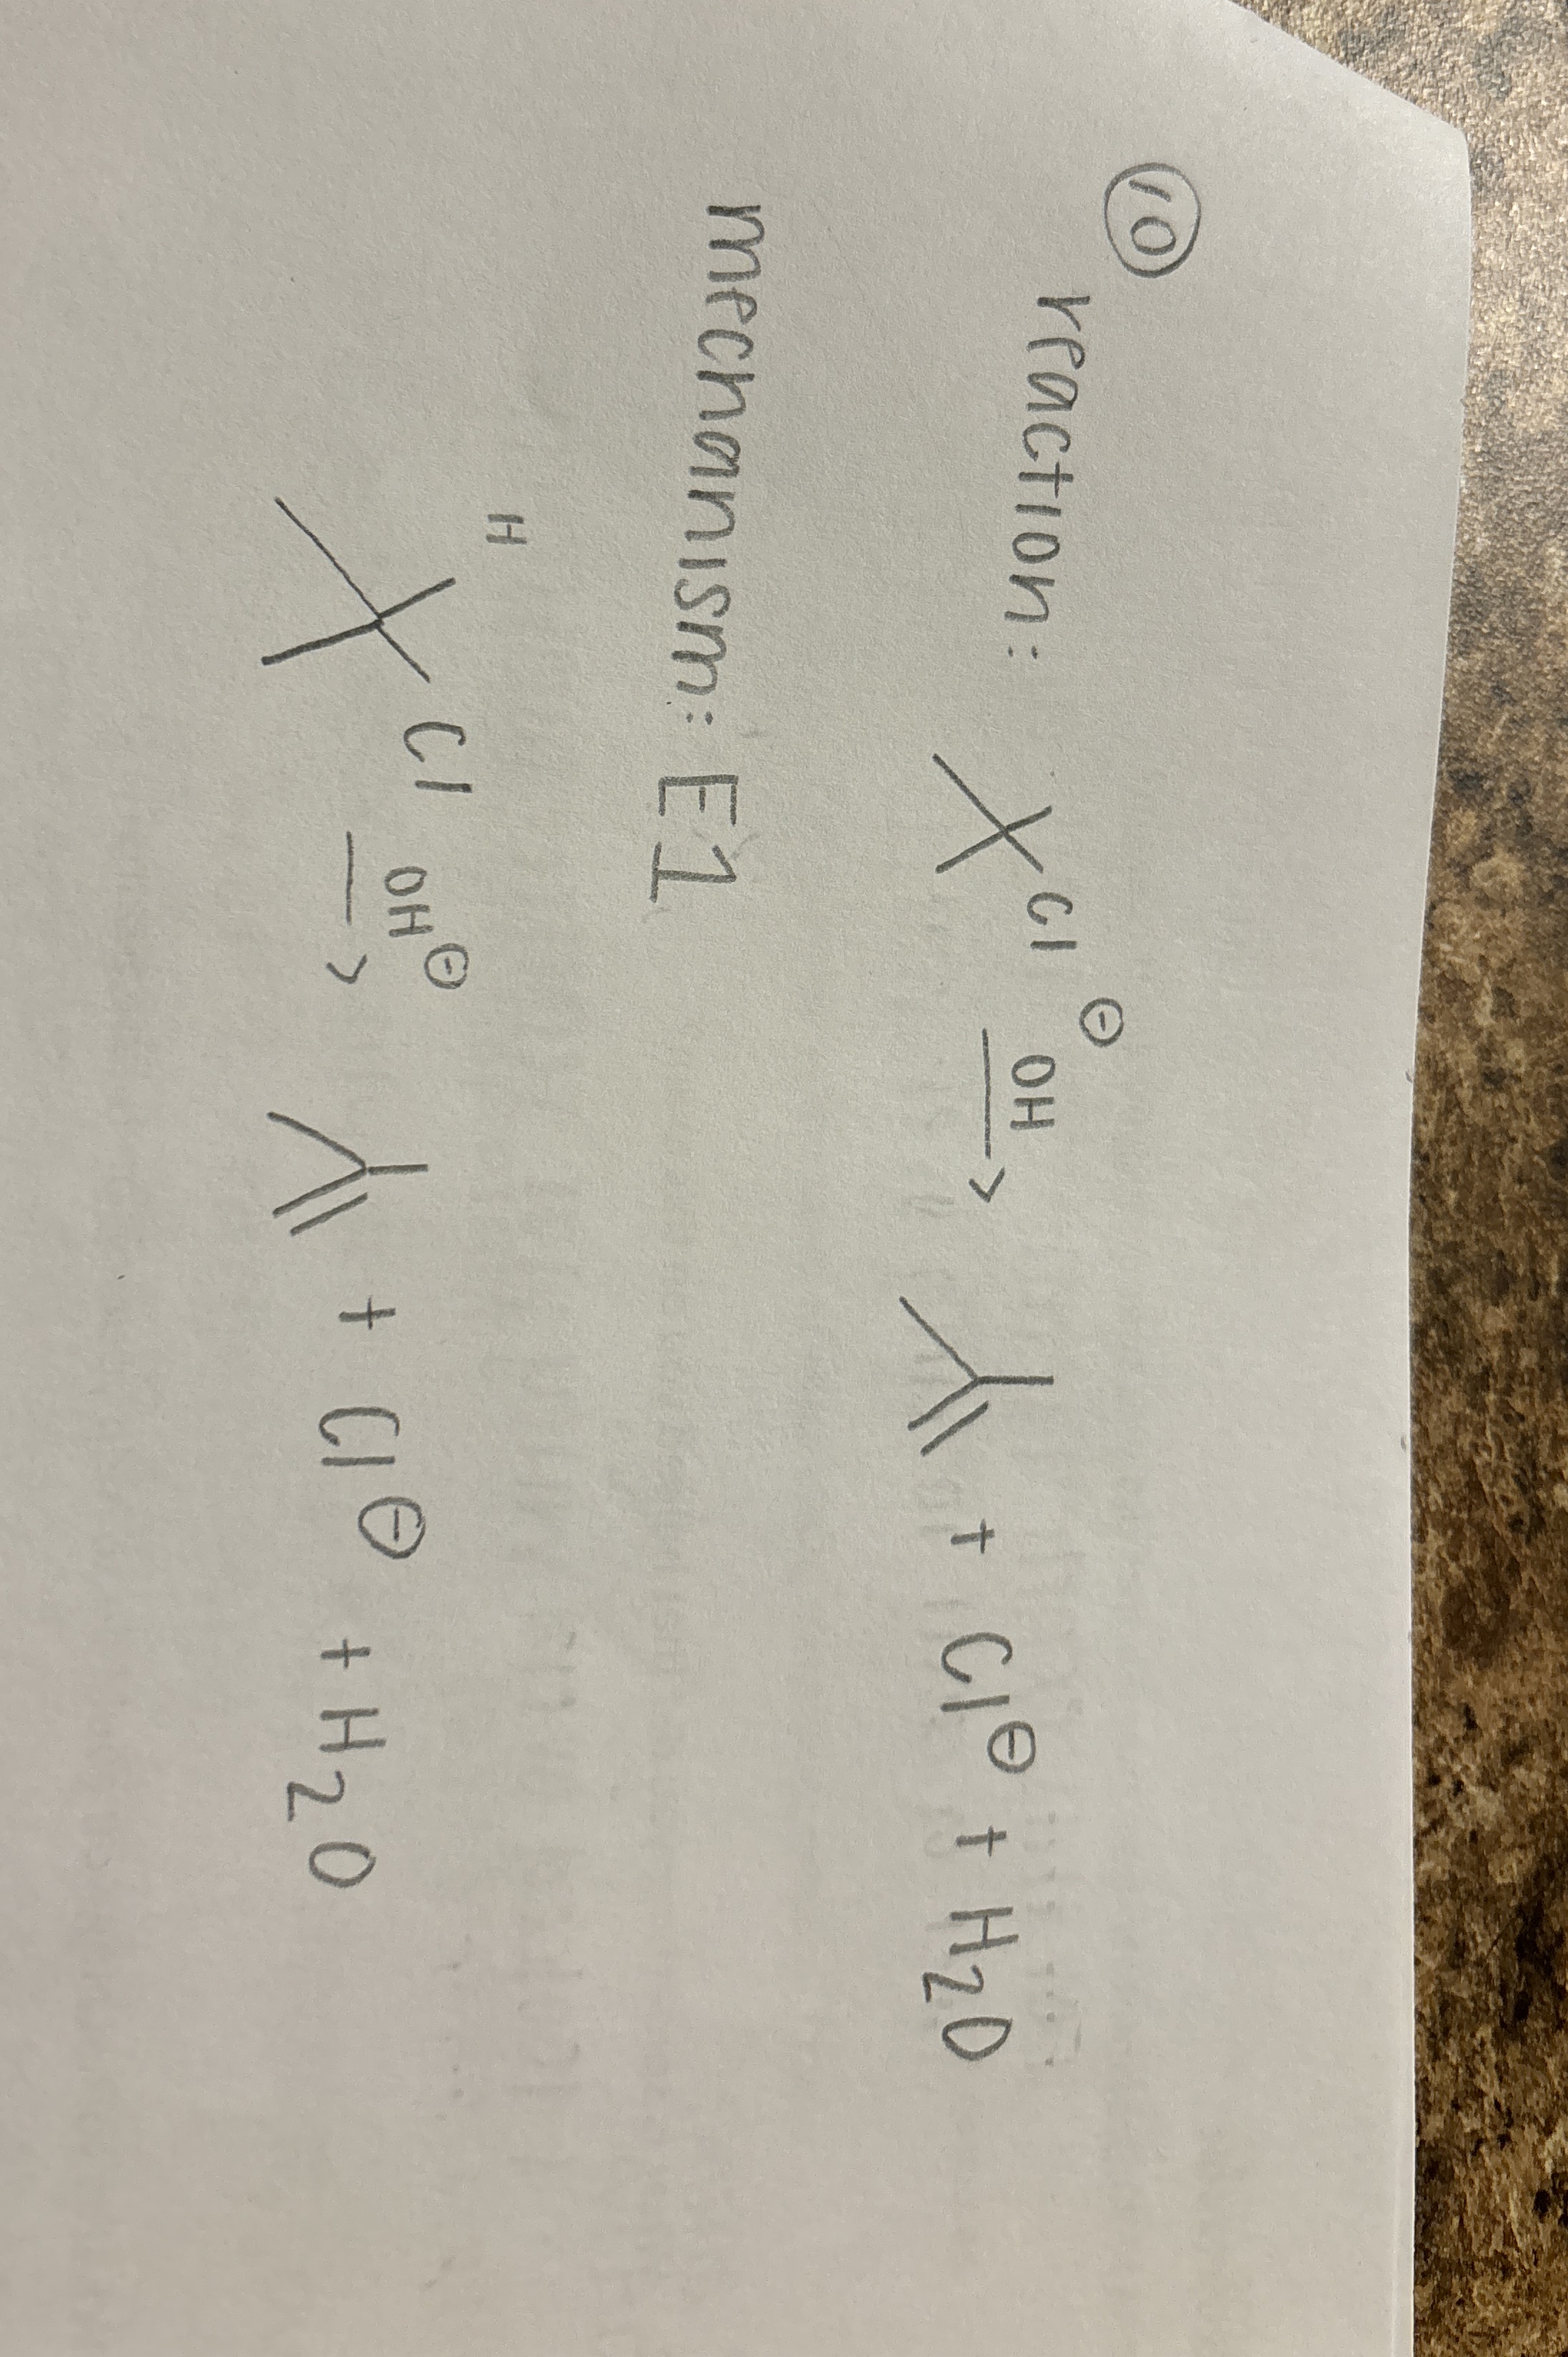 10
reaction: Cl OH⊖ → + Cl⊖ + H2O
mechanism: E1
H
Cl OH⊖ → + Cl⊖ + H2O